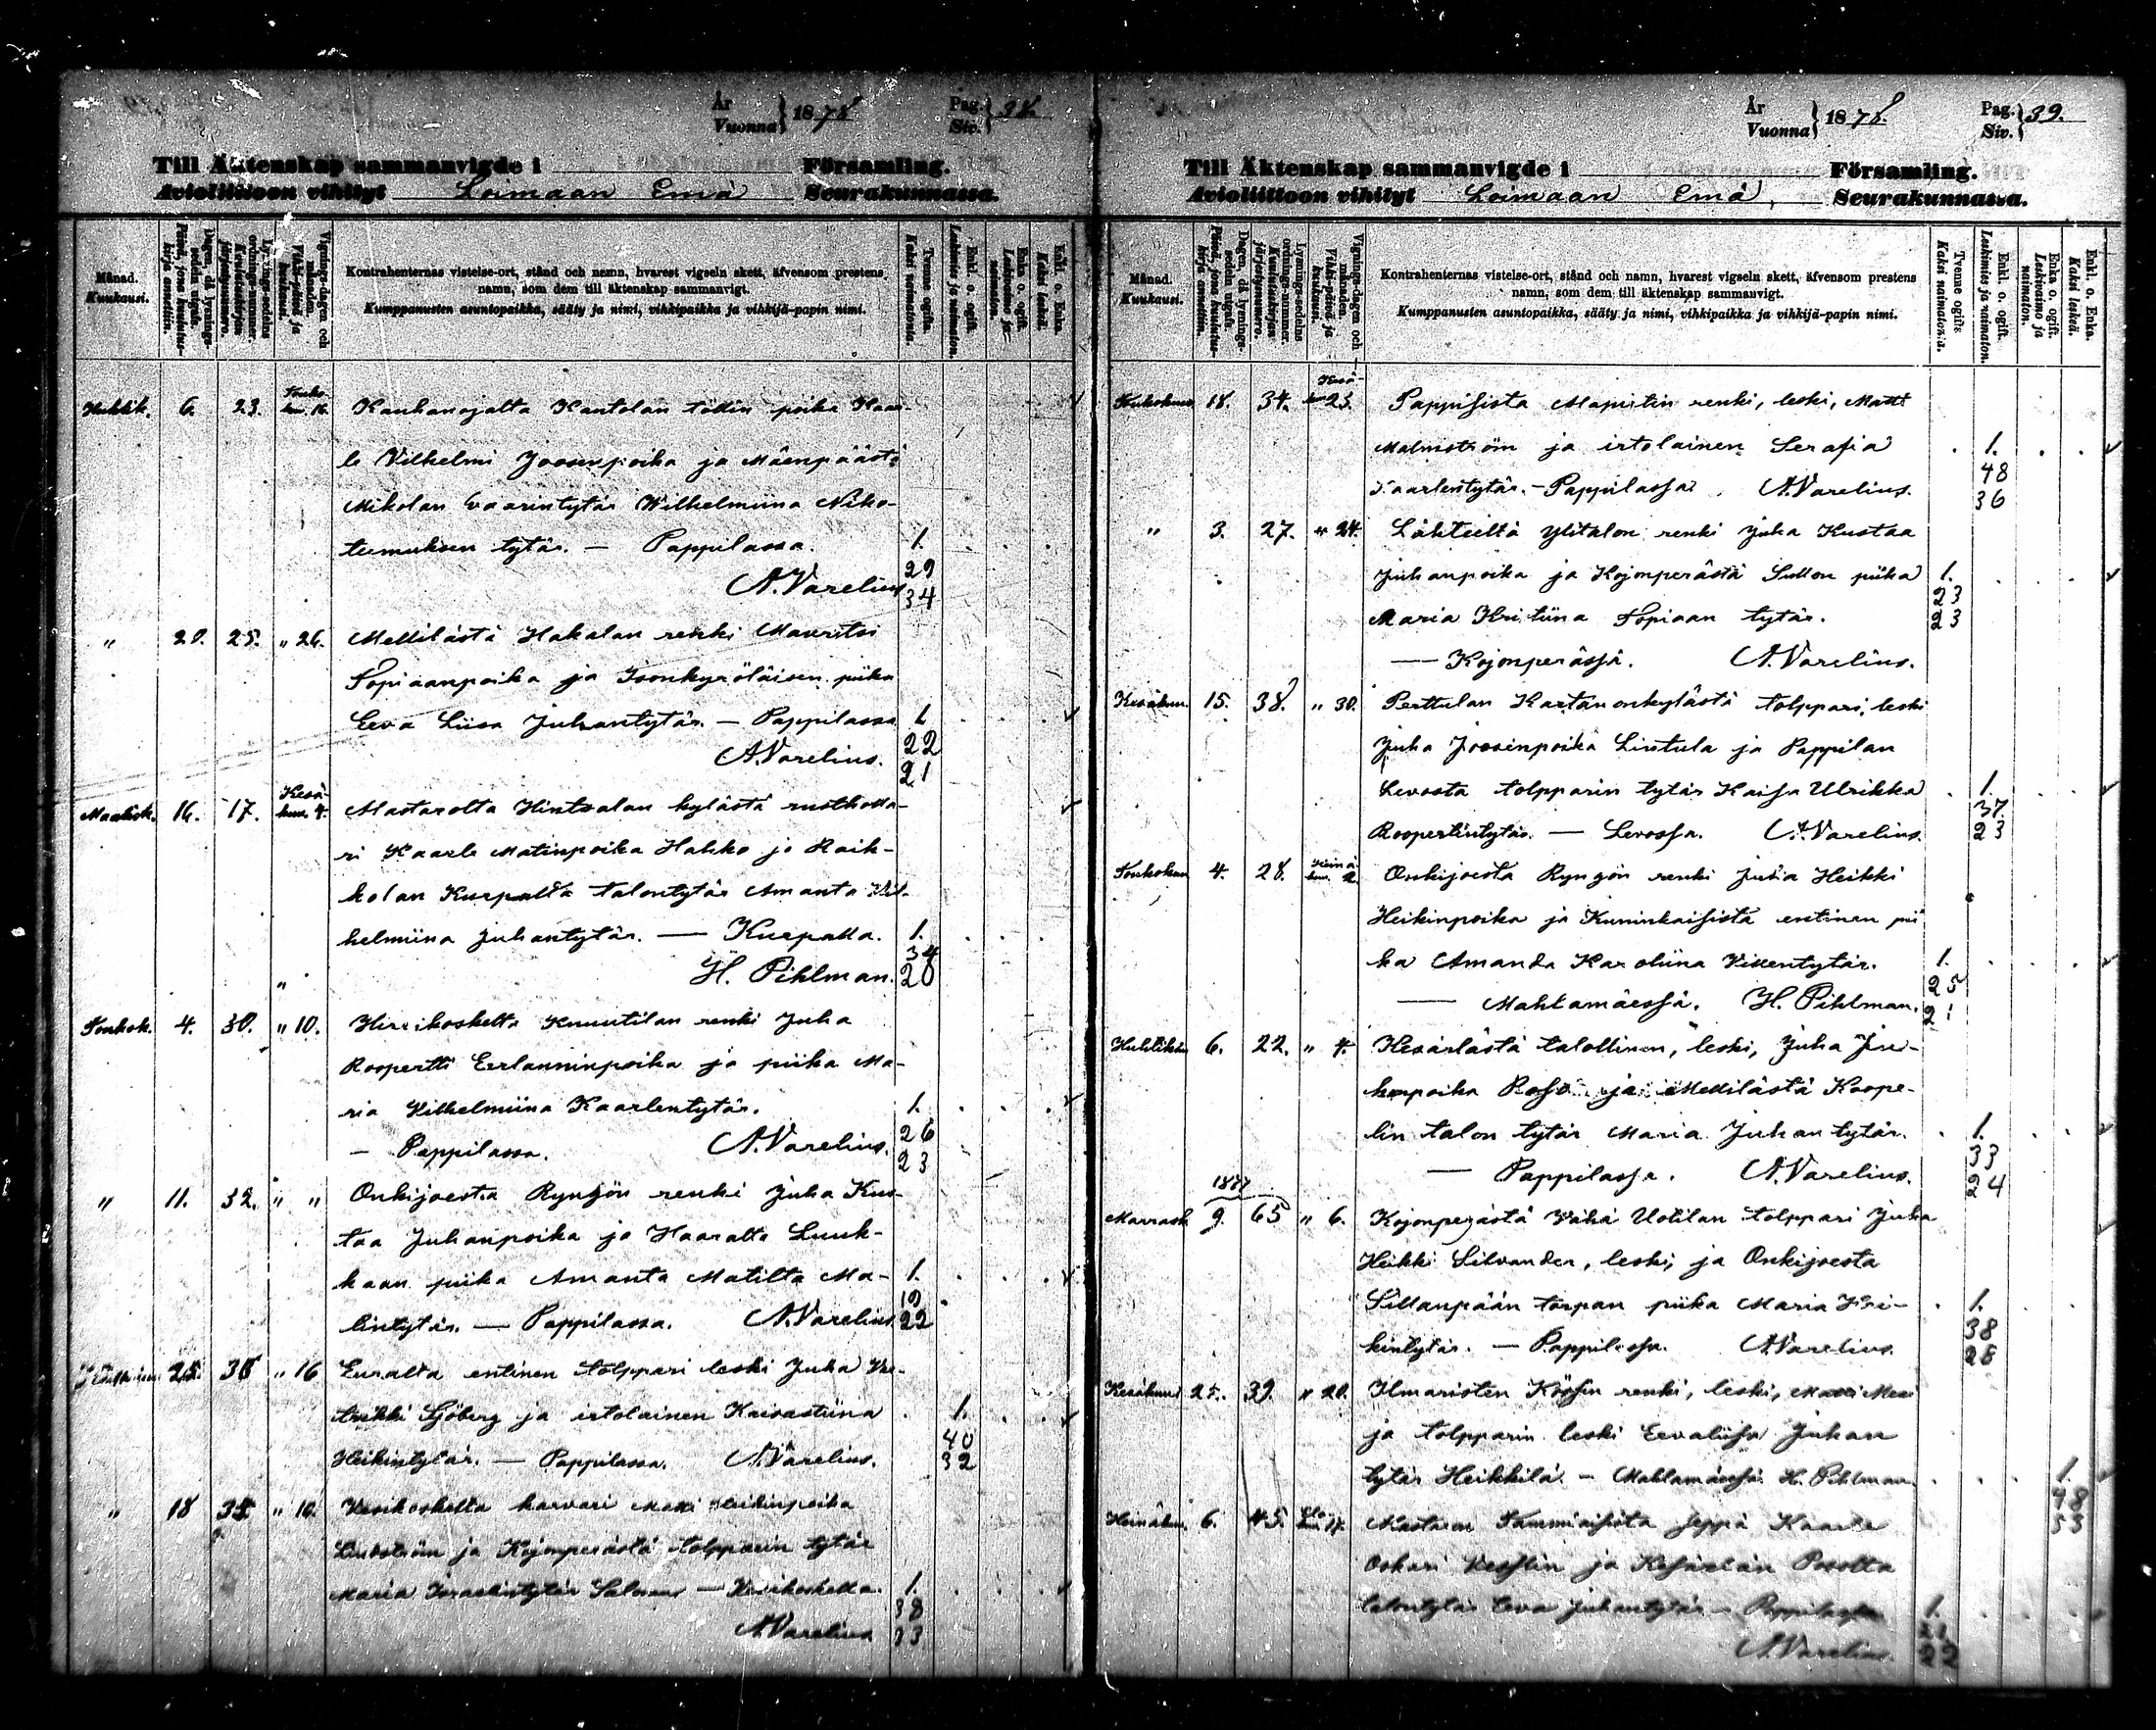 År
Vuonna } 1878 Pag.
Siv. } 38.
Till Äktenskap sammanvigde i Församling.
Avioliittoon vihityt Loimaan Emä Seurakunnassa.
Månad.
Kuukausi.
Dagen, då lysnings-sedeln utgafs.
Päivä, jona kuulutus-kirja annettiin.
Lysnings-sedelns ordnings-nummer.
Kuulutuskirjan järjestysnumero.
Vignings-dagen och månaden.
Vihki-päivä ja kuukausi.
Kontrahenternas vistelse-ort, stånd och namn, hvarest vigseln skett, äfvensom prestens
namn, som dem till äktenskap sammanvigt.
Kumppanusten asuntopaikka, sääty ja nimi, vihkipaikka ja vihkijä-papin nimi.
Tvenne ogifta.
Kaksi naimatonta.
Enkl. o. ogift.
Leskimies ja naimaton.
Enka o. ogift.
Leskivaimo ja naimaton.
Enkl. o. Enka.
Kaksi leskeä.
Huhtik. 6. 23. Touko-
kuu. 16. Kauhanojalta Kantolan töllin poika Kaar-
le Vilhelmi Joosenpoika ja Mäenpäästä
Mikolan vaarintytär Wilhelmiina Niko-
teemuksen tytär. — Pappilassa. 1.
A. Varelius 29
34
" 20. 25. " 26. Mellilästä Hakalan renki Mauritsi
Sopiaanpoika ja Isonkyröläisen piika
Eeva Liisa Juhantytär. — Pappilassa 1.
A. Varelius. 22
21
Maalisk. 16. 17. Kesä-
kuu. 4. Mastarolta Hintsalan kylästä rustholla-
ri Kaarle Matinpoika Hakko ja Raik-
kolan Kurpalta talontytär Amanta Vil-
helmiina Juhantytär. — Kurpalla. 1.
H. Pihlman. 34
20
Toukok. 4. 30. " 10. Hirvikoskelta Knuutilan renki Juha
Roopertti Eerlanninpoika ja piika Ma-
ria Vilhelmiina Kaarlentytär. 1.
— Pappilassa. A. Varelius. 26
23
" 11. 32. " " Onkijoesta Ryngön renki Juha Kus-
taa Juhanpoika ja Haaralta Luuk-
kaan piika Amanta Matilta Ma- 1.
lintytär. — Pappilassa. A. Varelius. 19
22
25. " 16 Euralta entinen tolppari leski Juha Vre-
trikki Sjöberg ja irtolainen Kaisastiina 1.
Heikintytär. — Pappilassa. A. Varelius. 40
32
" 18 " 16. Vesikoskelta karvari Matti Heikinpoika
Lindström ja Kojonperästä tolpparin tytär
Maria Israelintytär — Vesikoskella. 1.
A. Varelius 38
33
År
Vuonna } 1878. Pag.
Siv. } 39.
Till Äktenskap sammanvigde i Församling.
Avioliittoon vihityt Loimaan Emä, Seurakunnassa.
Månad.
Kuukausi.
Dagen, då lysnings-sedeln utgafs.
Päivä, jona kuulutus-kirja annettiin.
Lysnings-sedelns ordnings-nummer.
Kuulutuskirjan järjestysnumero.
Vignings-dagen och månaden.
Vihki-päivä ja kuukausi.
Kontrahenternas vistelse-ort, stånd och namn, hvarest vigseln skett, äfvensom prestens
namn, som dem till äktenskap sammanvigt.
Kumppanusten asuntopaikka, sääty ja nimi, vihkipaikka ja vihkijä-papin nimi.
Tvenne ogifta
Kaksi naimatonta.
Enkl. o. ogift.
Leskimies ja naimaton.
Enka o. ogift.
Leskivaimo ja naimaton.
Enkl. o. Enka.
Kaksi leskeä.
Toukokuu 18. 34. Kesä-
kuu 23. Pappisista Mapistin renki, leski, Matti
Malmström ja irtolainen Serafia 1.
Kaarlentytär. — Pappilassa. A. Varelius. 48
36
" 3. 27. " 24. Lähteeltä Ylitalon renki Juha Kustaa
Juhanpoika ja Kojonperästä Sullon piika 1.
Maria Kristiina Sopiaan tytär. 23
23
— Kojonperässä. A. Varelius.
Kesäkuu 15. 38. " 30. Perttulan Kartanonkylästä tolppari, leski
Juha Joosenpoika Lintula ja Pappilan
Levosta tolpparin tytär Kaisa Ulrikka 1.
Roopertintytär. — Levossa. A. Varelius. 37.
23
Toukokuu 4. 28. Heinä-
kuu. 2. Onkijoesta Ryngön renki Juha Heikki
Heikinpoika ja Kuninkaisista entinen pii-
ka Amanda Karoliina Villentytär. 1.
— Mahlamäessä. H. Pihlman. 25
21
Huhtikuu 6. 22. " 4. Kesärlästä talollinen, leski, Juha
ja Mellilästä Koope-
lin talon tytär Maria Juhan tytär. 1.
— Pappilassa. A. Varelius. 33
24
1877
Marrask. 9. 65 " 6. Kojonperästä Vähä Uotilan tolppari Juha
Heikki Silvander, leski, ja Onkijoesta
Sillanpään torpan piika Maria Hei- 1.
kintytär. — Pappilassa. A. Varelius. 38
28
Kesäkuu 25. 39. " 20. Ilmaristen Köösin renki, leski, Matti
ja tolpparin leski Eevaliisa Juhan
tytär Heikkilä. — Mahlamäessä H. Pihlman. 1.
48
53
Heinäkuu 6. 45. seppä Kaarle
Oskari ja
talontytär Eeva Juhantytär — Pappilassa 1.
A. Varelius. 21
22